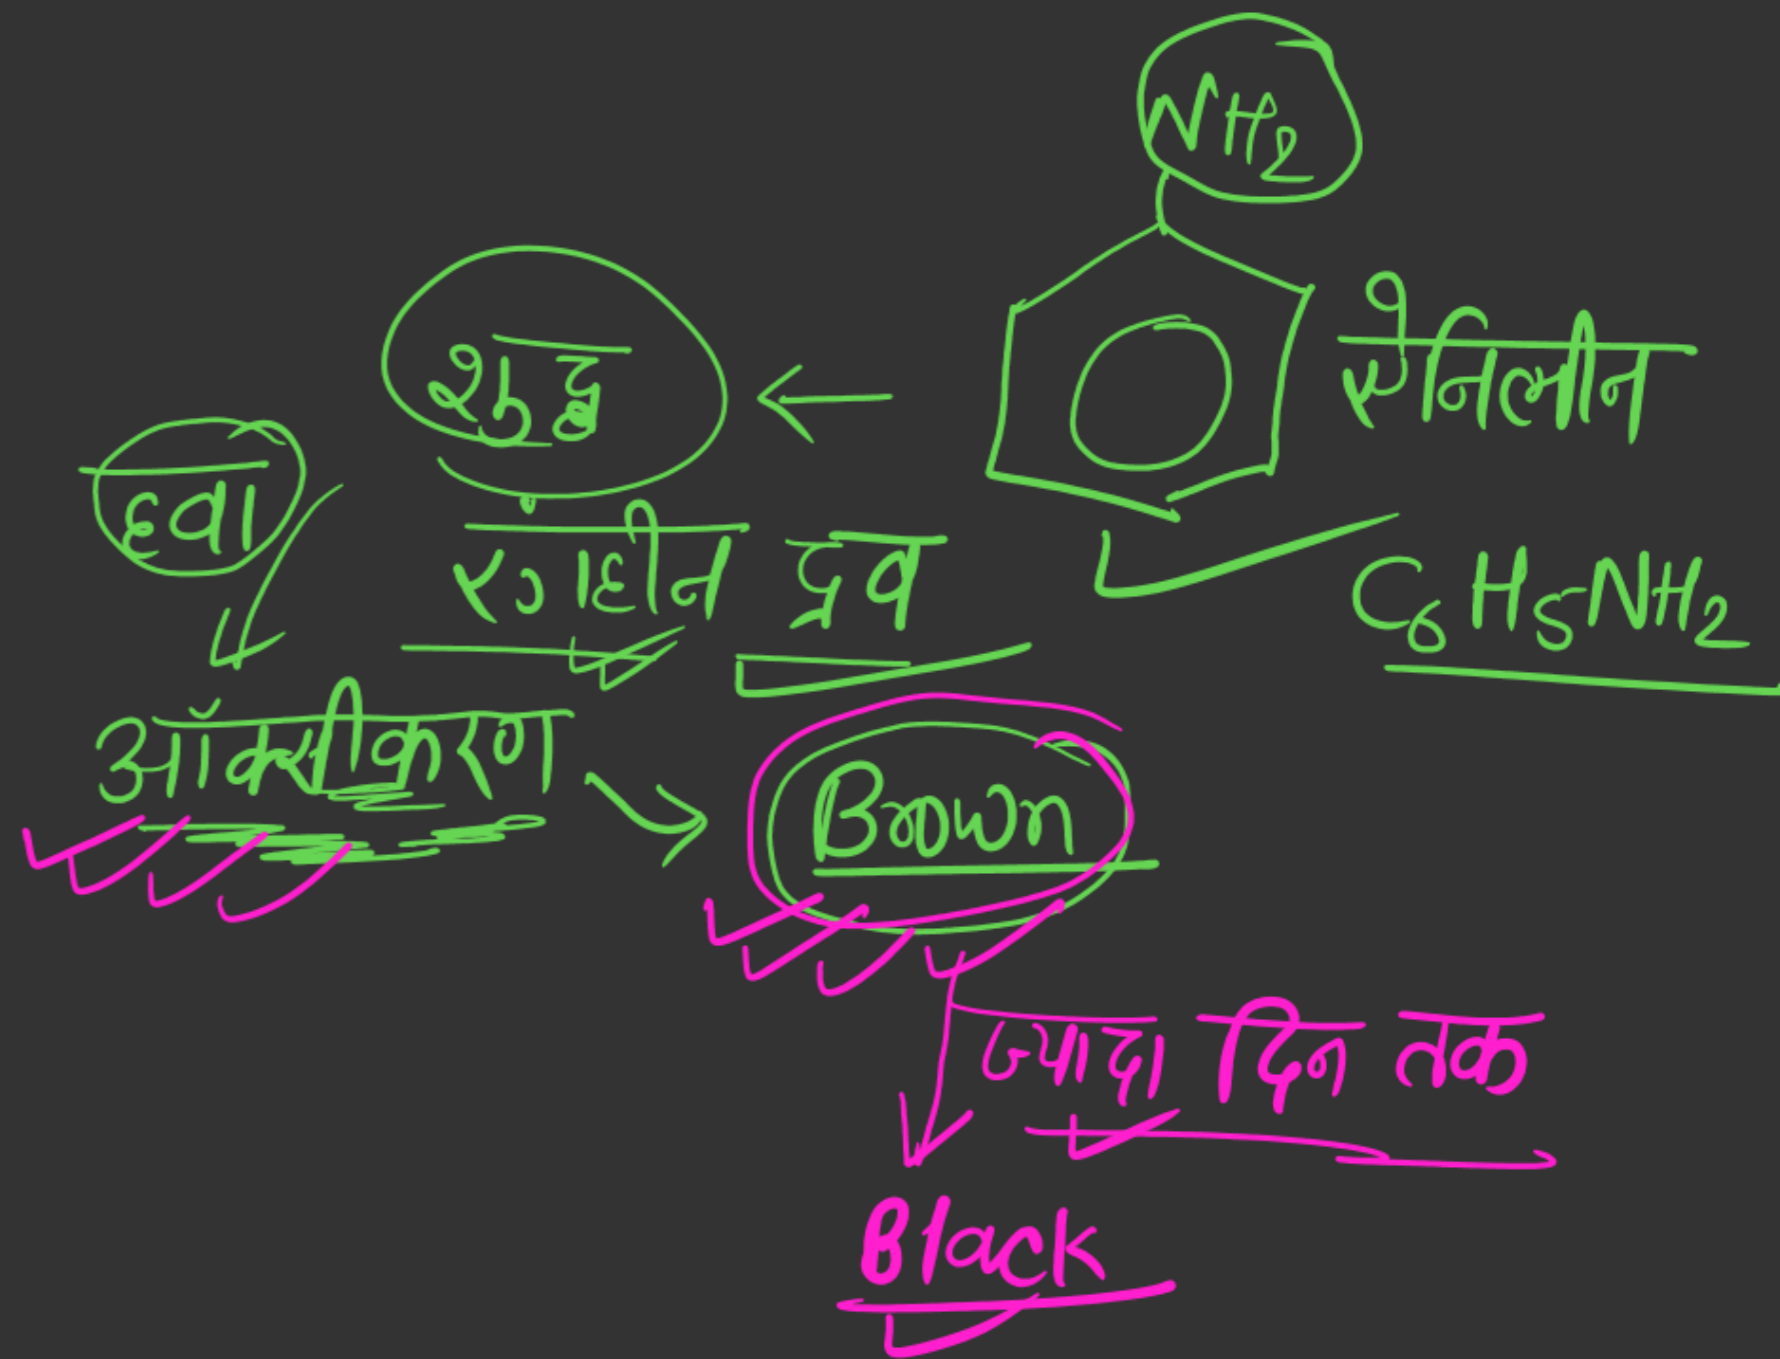 NH2
ऐनिलीन
शुद्ध
हवा
रंगहीन द्रव
C6H5NH2
ऑक्सीकरण
Brown
ज्यादा दिन तक
Black